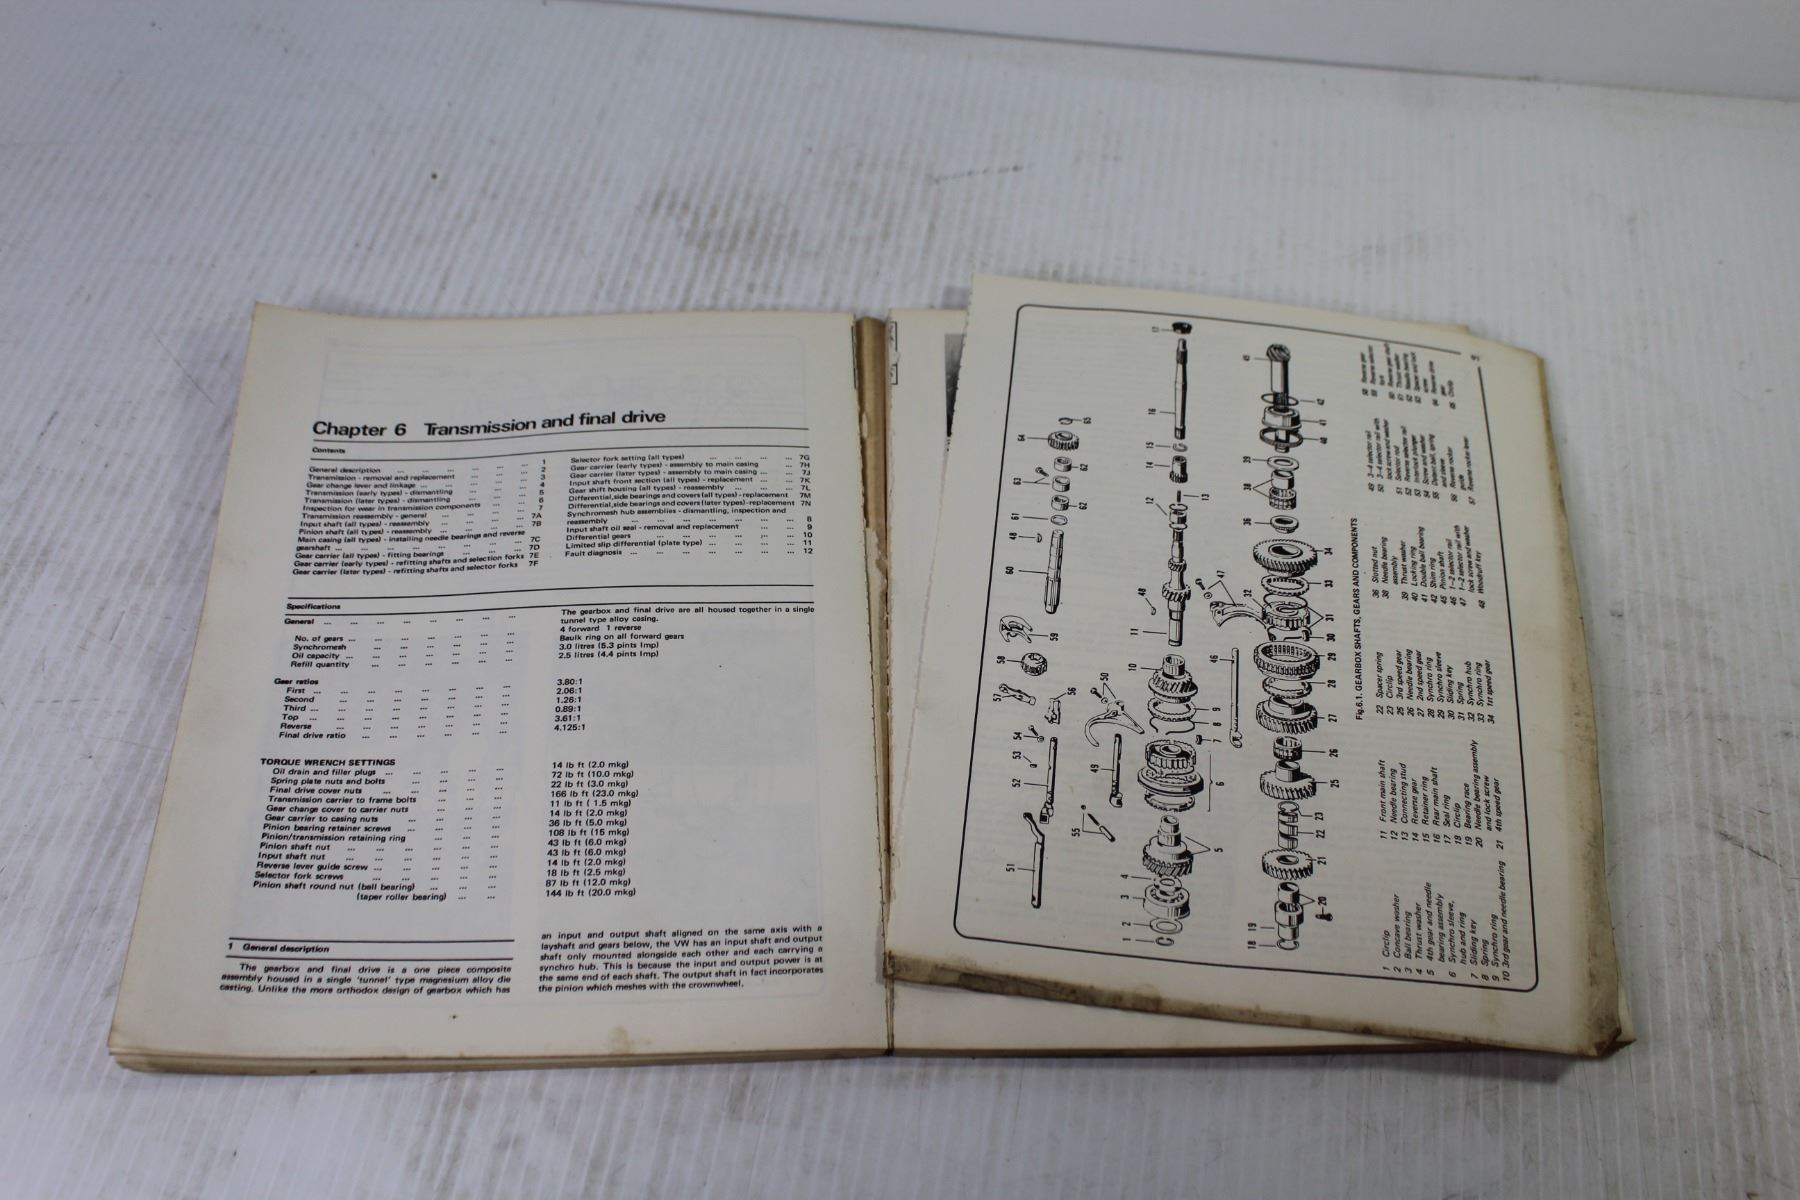 Chapter 6 Transmission and final drive
Contents
General description ... 1
Transmission - removal and replacement ... 2
Gear change lever and linkage ... 3
Transmission (early types) - dismantling ... 4
Transmission (later types) - dismantling ... 5
Inspection for wear in transmission components ... 6
Transmission reassembly - general ... 7
Input shaft (all types) - reassembly ... 7A
Pinion shaft (all types) - reassembly ... 7B
Main casing (all types) - installing needle bearings and reverse
gearshaft ... 7C
Gear carrier (all types) - fitting bearings ... 7D
Gear carrier (early types) - refitting shafts and selection forks 7E
Gear carrier (later types) - refitting shafts and selector forks 7F
Selector fork setting (all types) ... 7G
Gear carrier (early types) - assembly to main casing ... 7H
Gear carrier (later types) - assembly to main casing ... 7J
Input shaft front section (all types) - replacement ... 7K
Gear shift housing (all types) - reassembly ... 7L
Differential,side bearings and covers (all types) - replacement 7M
Differential,side bearings and covers (later types)-replacement 7N
Synchromesh hub assemblies - dismantling, inspection and
reassembly ... 8
Input shaft oil seal - removal and replacement ... 9
Differential gears ... 10
Limited slip differential (plate type) ... 11
Fault diagnosis ... 12
Specifications
General ... The gearbox and final drive are all housed together in a single
tunnel type alloy casing.
No. of gears ... 4 forward 1 reverse
Synchromesh ... Baulk ring on all forward gears
Oil capacity ... 3.0 litres (5.3 pints Imp)
Refill quantity ... 2.5 litres (4.4 pints Imp)
Gear ratios
First ... 3.80:1
Second ... 2.06:1
Third ... 1.26:1
Top ... 0.89:1
Reverse ... 3.61:1
Final drive ratio ... 4.125:1
TORQUE WRENCH SETTINGS
Oil drain and filler plugs ... 14 lb ft (2.0 mkg)
Spring plate nuts and bolts ... 72 lb ft (10.0 mkg)
Final drive cover nuts ... 22 lb ft (3.0 mkg)
Transmission carrier to frame bolts ... 166 lb ft (23.0 mkg)
Gear change cover to carrier nuts ... 11 lb ft ( 1.5 mkg)
Gear carrier to casing nuts ... 14 lb ft (2.0 mkg)
Pinion bearing retainer screws ... 36 lb ft (5.0 mkg)
Pinion/transmission retaining ring ... 108 lb ft (15 mkg)
Pinion shaft nut ... 43 lb ft (6.0 mkg)
Input shaft nut ... 43 lb ft (6.0 mkg)
Reverse lever guide screw ... 14 lb ft (2.0 mkg)
Selector fork screws ... 18 lb ft (2.5 mkg)
Pinion shaft round nut (ball bearing) ... 87 lb ft (12.0 mkg)
(taper roller bearing) ... 144 lb ft (20.0 mkg)
1 General description
The gearbox and final drive is a one piece composite
assembly housed in a single 'tunnel' type magnesium alloy die
casting. Unlike the more orthodox design of gearbox which has
an input and output shaft aligned on the same axis with a
layshaft and gears below, the VW has an input shaft and output
shaft only mounted alongside each other and each carrying a
synchro hub. This is because the input and output power is at
the same end of each shaft. The output shaft in fact incorporates
the pinion which meshes with the crownwheel.
Fig.6.1. GEARBOX SHAFTS, GEARS AND COMPONENTS
1 Circlip
2 Concave washer
3 Ball bearing
4 Thrust washer
5 4th gear and needle
bearing assembly
6 Synchro sleeve,
hub and ring
7 Sliding key
8 Spring
9 Synchro ring
10 3rd gear and needle bearing
11 Front main shaft
12 Needle bearing
13 Connecting stud
14 Reverse gear
15 Retainer ring
16 Rear main shaft
17 Seal ring
18 Circlip
19 Bearing race
20 Needle bearing assembly
and lock screw
21 4th speed gear
22 Spacer spring
23 Circlip
25 3rd speed gear
26 Needle bearing
27 2nd speed gear
28 Synchro ring
29 Synchro sleeve
30 Sliding key
31 Spring
32 Synchro hub
33 Synchro ring
34 1st speed gear
36 Slotted nut
38 Needle bearing
assembly
39 Thrust washer
40 Locking ring
41 Double ball bearing
42 Shim ring
45 Pinion shaft
46 1-2 selector rail
47 1-2 selector rail with
lock screw and washer
48 Woodruff key
49 3-4 selector rail
50 3-4 selector rail with
lock screw and washer
51 Selector rod
52 Reverse selector rail
53 Interlock plunger
54 Screw and washer
55 Detent ball, spring
and sleeve
56 Reverse rocker
guide
57 Reverse rocker lever
58 Reverse gear
59 Reverse selector
fork
60 Reverse gear shaft
61 Thrust washer
62 Needle bearing
63 Spacer and lock
screw
64 Reverse drive
gear
65 Circlip